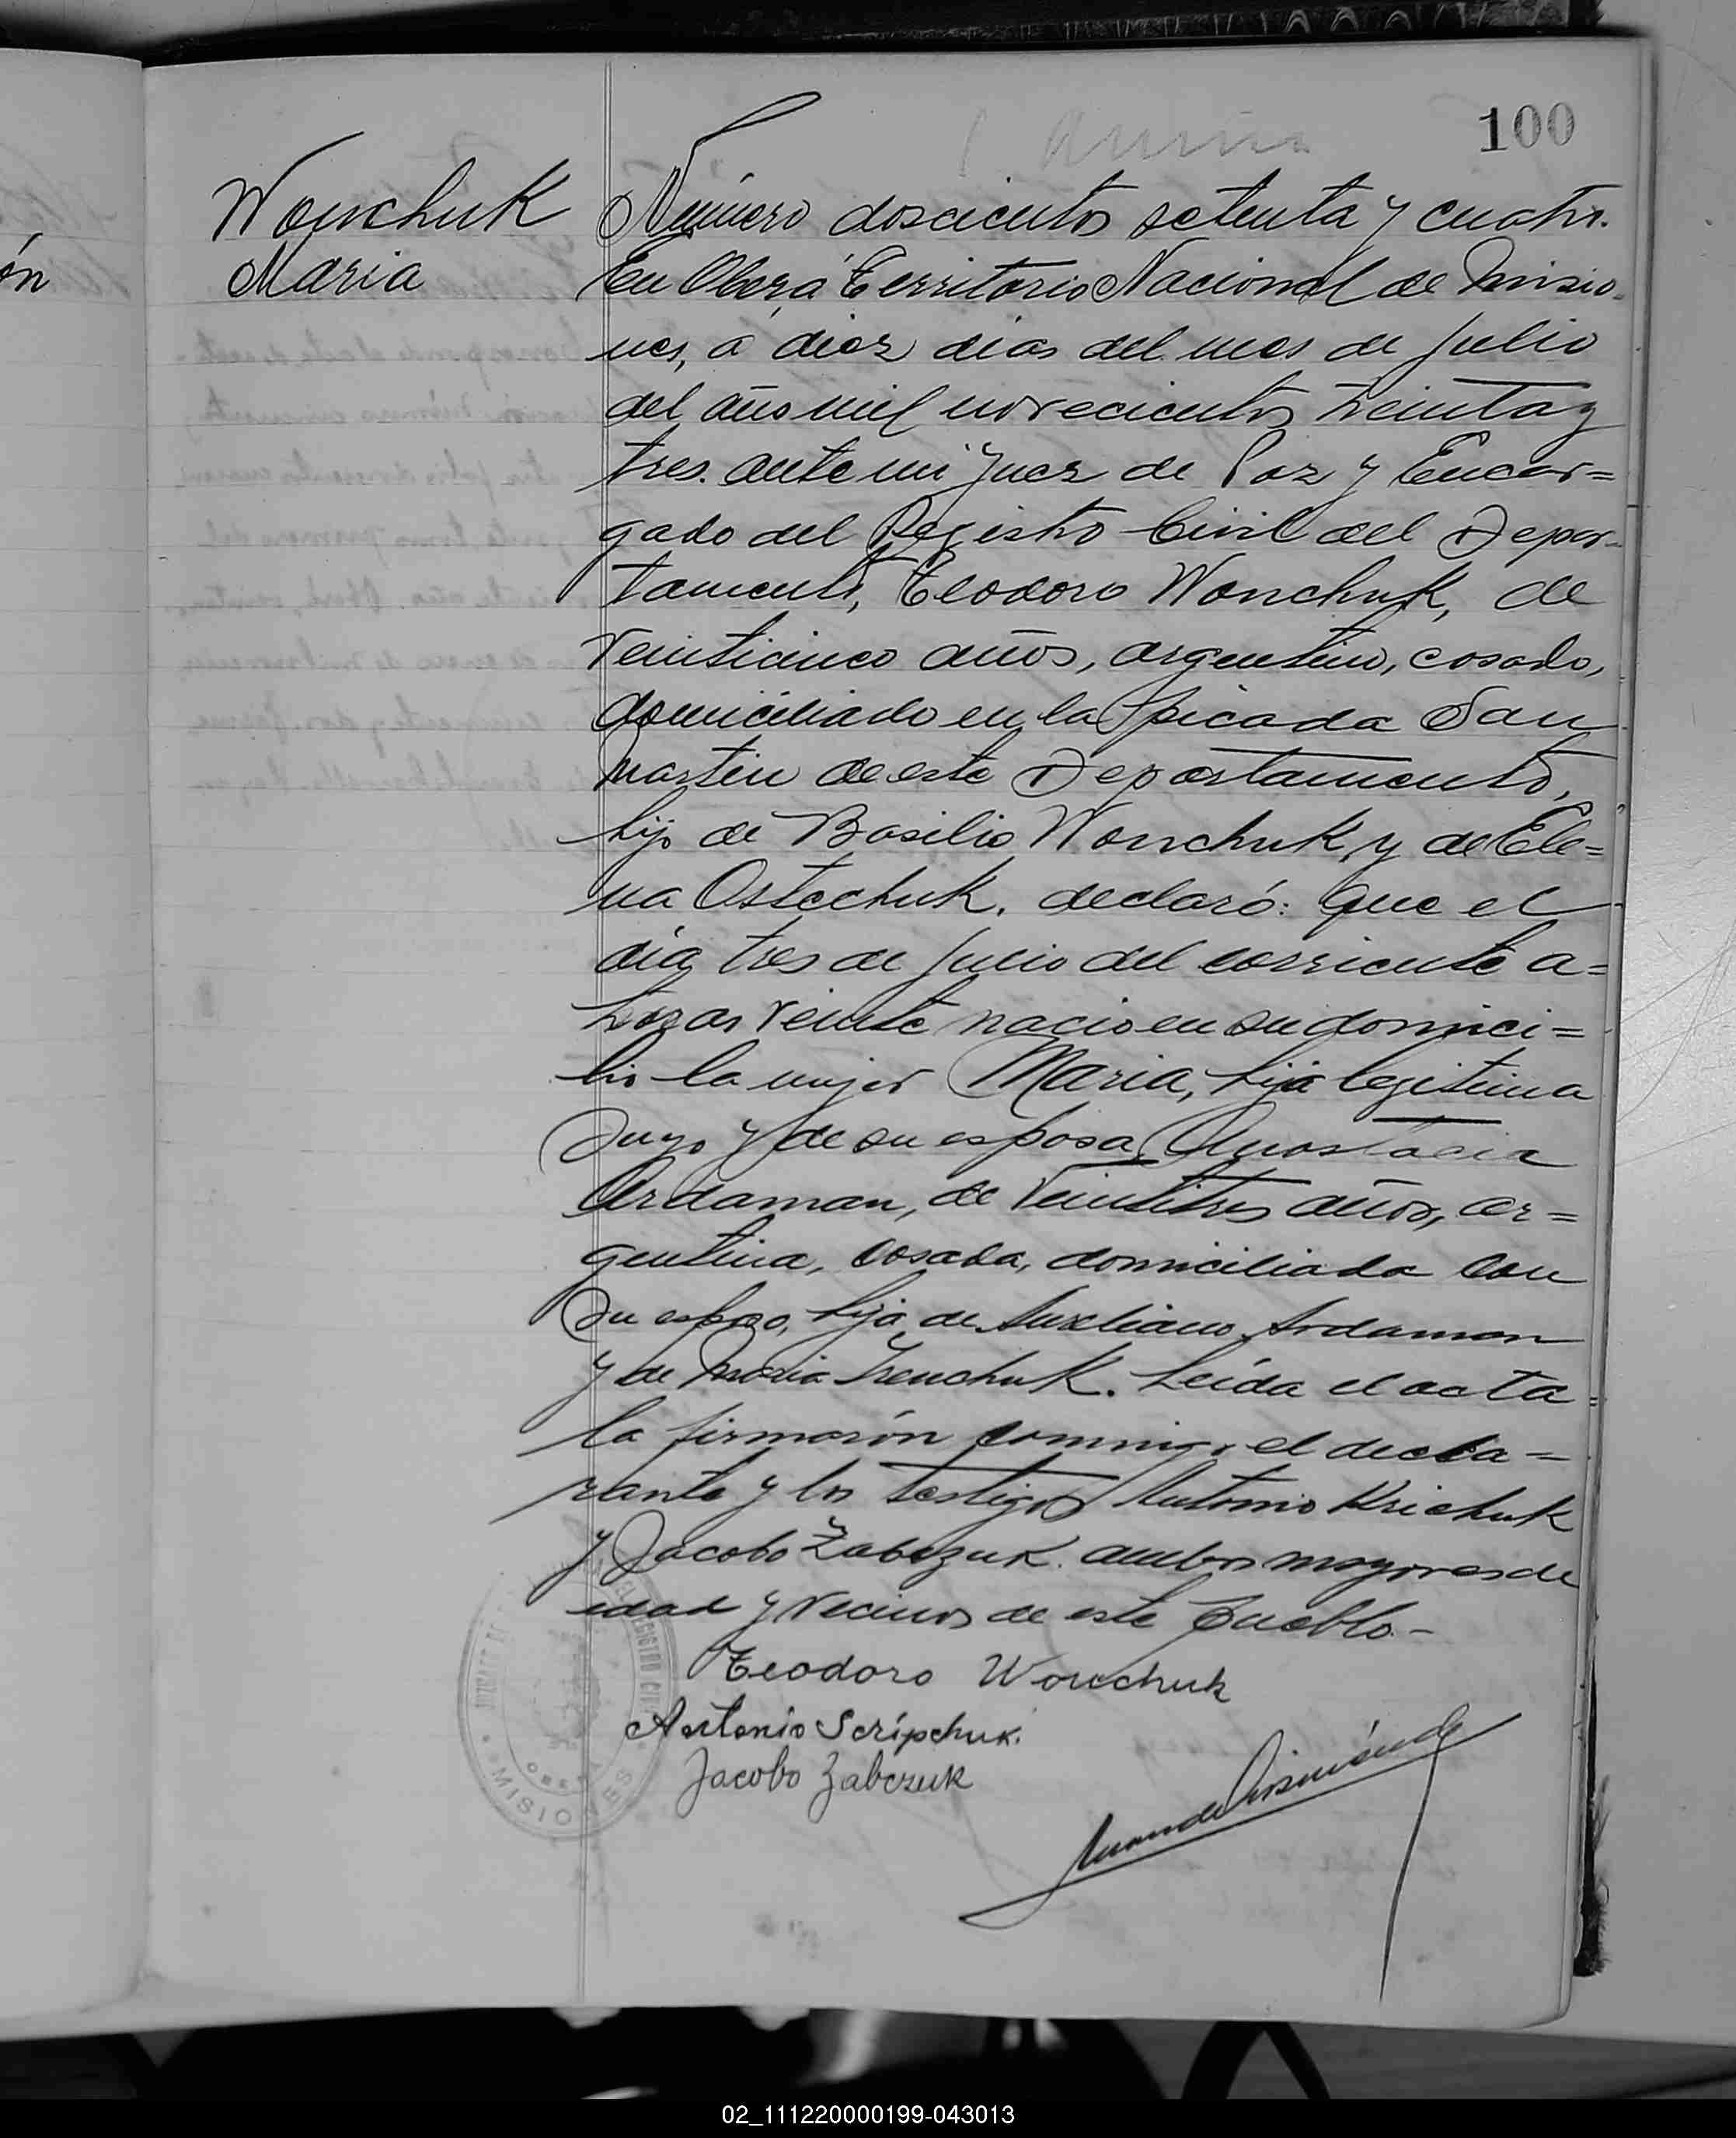 100
Wonchuk
Maria
Número doscientos setenta y cuatro.
En Oberá Territorio Nacional de Misio-
nes, a diez dias del mes de Julio
del año mil novecientos treinta y
tres. ante mi Juez de Paz y Encar=
gado del Registro Civil del Depar-
tamento, Teodoro Wonchuk, de
veinticinco años, argentino, casado,
domiciliado en la picada San
Martin de este Departamento,
hijo de Basilio Wonchuk y de Ele=
na Ostechuk. declaró: que el
día tres de Julio del corriente a=
horas veinte nacio en su domici=
lio la mujer Maria, hija legitima
suya y de su esposa Anastacia
Ardaman, de veintitres años, ar=
gentina, casada, domiciliada con
su esposo, hija de Ardaman
y de Maria Irenchuk. Leída el acta
la firmarón conmigo el decla-
rante y los testigos Antonio Krichuk
y Jacobo Zabczuk. ambos mayores de
edad y vecinos de este Pueblo.-
Teodoro Wonchuk
Antonio Scripchuk.
Jacobo Zabczuk
REGISTRO CIVIL
OBERÁ
MISIONES
ón
02_111220000199-043013